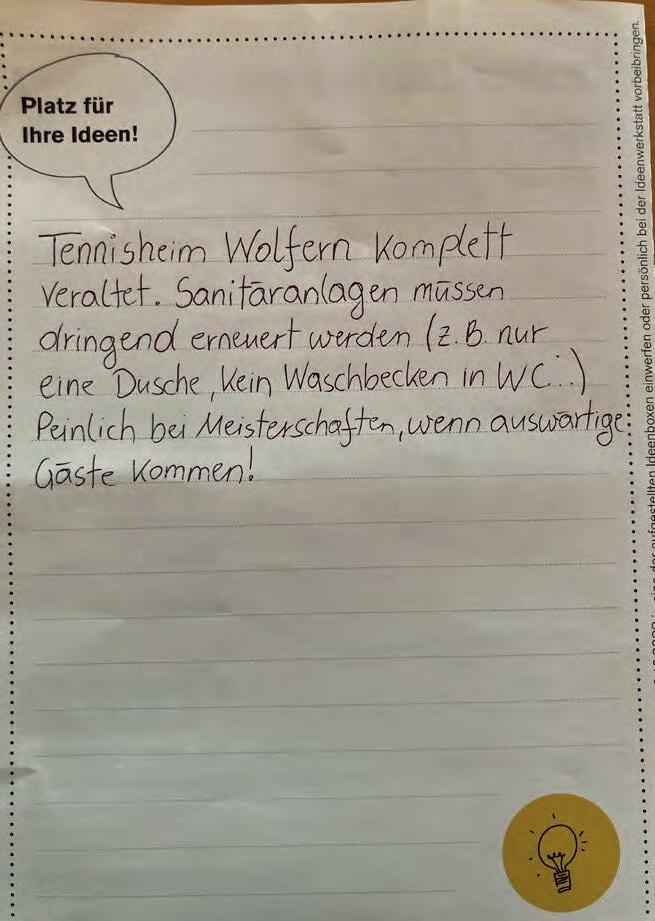 Platz für
Ihre Ideen!
Tennisheim Wolfern komplett
veraltet. Sanitäranlagen müssen
dringend erneuert werden (z.B. nur
eine Dusche, kein Waschbecken in WC...)
Peinlich bei Meisterschaften, wenn auswärtige
Gäste kommen!
eine der aufgestellten Ideenboxen einwerfen oder persönlich bei der Ideenwerkstatt vorbeibringen.